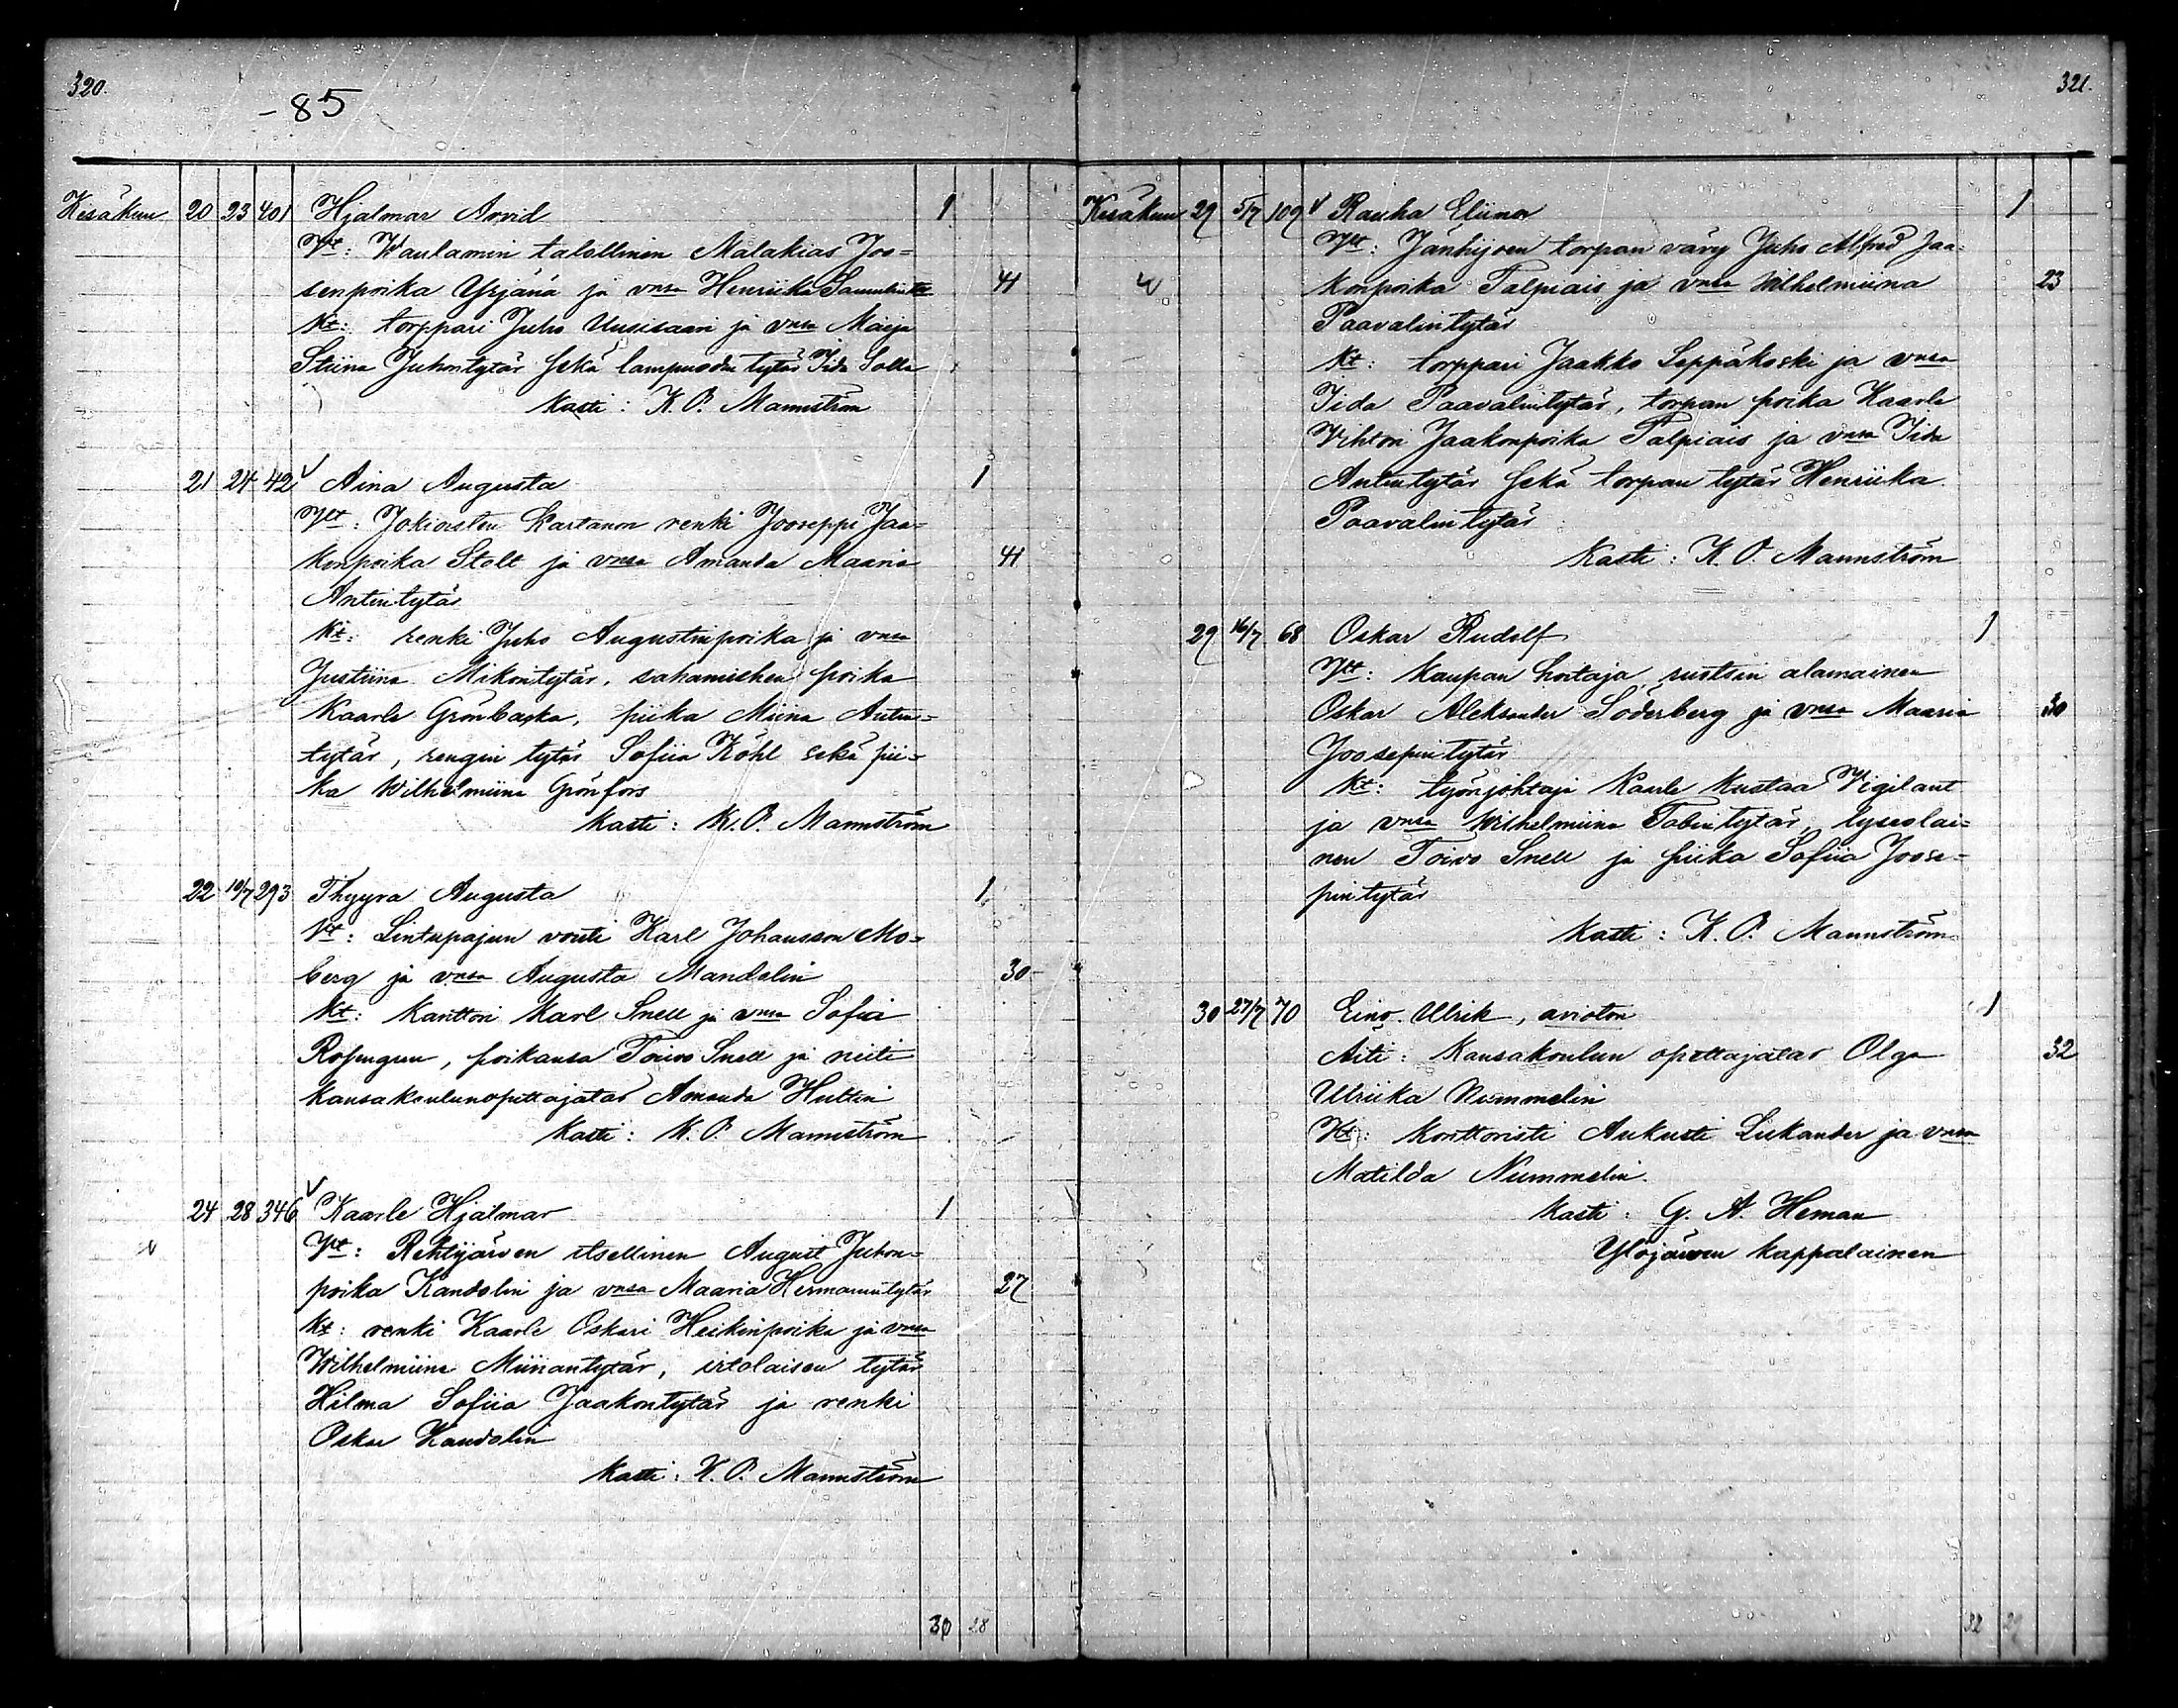 320.
-85
Kesäkuu 20 23 401 Hjalmar Arvid 1
Vt: Waulammin talollinen Malakias Joo=
senpoika Yrjänä ja vmsa Henriika Samulintr 41
Kt: torppari Juho Uusisaari ja vmsa Maija
Stiina Juhontytär sekä lampuodin tytär Iida Solla
Kasti: K. O. Mannström
21 24 42 Aina Augusta 1
Vt: Jokioisten Kartanon renki Jooseppi Jaa=
konpoika Stolt ja vmsa Amanda Maaria 41
Antintytär
Kt: renki Juho Augustinpoika ja vmsa
Justiina Mikontytär, sahamiehen poika
Kaarle Grönbacka, piika Miina Antin=
tytär, rengin tytär Sofiia Köhl sekä pii=
ka Wilhelmiina Grönfors
Kasti: K. O. Mannström
22 10/7 293 Thyyra Augusta 1
Vt: Lintupajun vouti Karl Johansson Mo=
berg ja vmsa Augusta Mandelin 30
Kt: Kanttori Karl Snell ja vmsa Sofia
poikansa Toivo Snell ja neiti
Kansakoulunopettajatar Amanda Hultin
Kasti: K. O. Mannström
24 28 346 Kaarle Hjalmar 1
Vt: Rehtijärven itsellinen August Juhon=
poika Kandolin ja vmsa Maaria Hermannintytär 27
Kt: renki Kaarle Oskari Heikinpoika ja vmsa
Wilhelmiina Miinantytär, irtolaisen tytär
Hilma Sofiia Jaakontytär ja renki
Oskar Kandolin
Kasti: K. O. Mannström
30 28
321.
Kesäkuu 29 5/7 109 Rauha Eliina 1
Vt: Jänhijoen torpan vävy Juho Alfred Jaa=
konpoika Talpiais ja vmsa Wilhelmiina 23
Paavalintytär
Kt: torppari Jaakko Seppäkoski ja vmsa
Iida Paavalintytär, torpan poika Kaarle
Vihtori Jaakonpoika Talpiais ja vmsa Iida
Antintytär sekä torpan tytär Henriika
Paavalintytär
Kasti: K. O. Mannström
29 16/7 68 Oskar Rudolf 1
Vt: Kaupan hoitaja, ruotsin alamainen
Oskar Aleksander Söderberg ja vmsa Maaria 30
Joosepintytär
Kt: työnjohtaja Kaarle Kustaa Vigilant
ja vmsa Wilhelmiina Tobintytär, lyseolai=
nen Toivo Snell ja piika Sofiia Joose=
pintytär
Kasti: K. O. Mannström
30 27/7 70 Eino Ulrik, avioton 1
Äiti: Kansakoulun opettajatar Olga 32
Ulriika Nummelin
Kt: Konttoristi Aukusti Liukander ja vmsa
Matilda Nummelin.
Kasti: G. A. Heman
Ylöjärven kappalainen
32 29